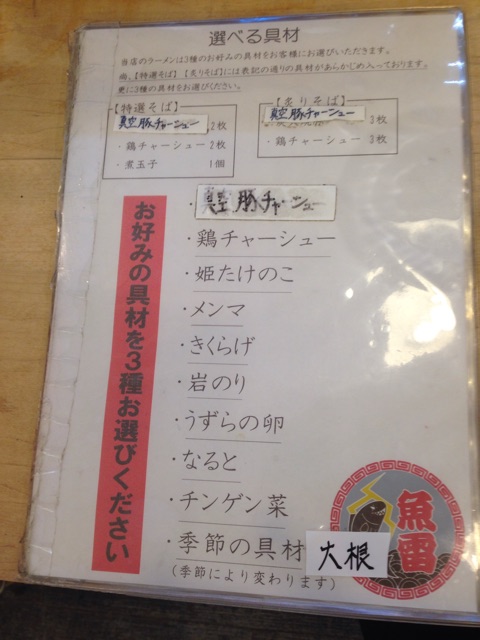 選べる具材
当店のラーメンは3種のお好みの具材をお客様にお選びいただきます。
尚、【特選そば】【炙りそば】には表記の通りの具材があらかじめ入っております。
更に3種の具材をお選びください。
【特選そば】
真空豚チャーシュー 2枚
・鶏チャーシュー 2枚
・煮玉子 1個
【炙りそば】
真空豚チャーシュー 3枚
・鶏チャーシュー 3枚
お好みの具材を3種お選びください
・真空豚チャーシュー
・鶏チャーシュー
・姫たけのこ
・メンマ
・きくらげ
・岩のり
・うずらの卵
・なると
・チンゲン菜
・季節の具材 大根
(季節により変わります)
魚雷